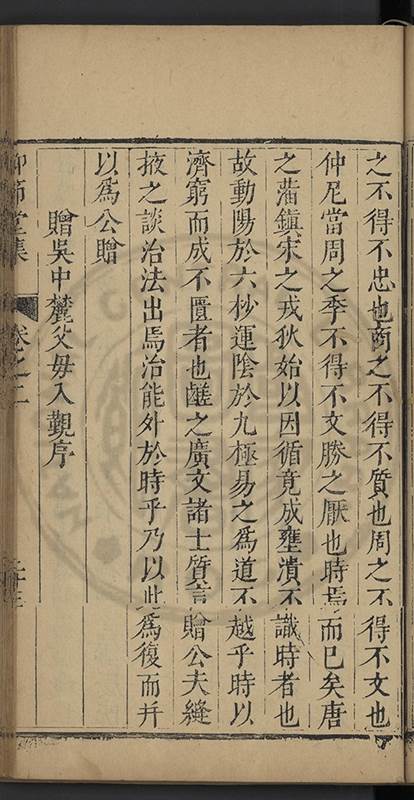 之不得不忠也商之不得不質也周之不得不文也
仲尼當周之季不得不文勝之厭也時焉而已矣唐
之藩鎮宋之戎狄始以因循竟成壅潰不識時者也
故動陽於六秒運陰於九極易之為道不越乎時以
濟窮而成不匱者也鹺之廣文諸士質言贈公夫縫
掖之談治法出焉治能外於時乎乃以此為復而幷
以為公贈
贈吳中麓父毋入覲序
仰節堂集
卷之二